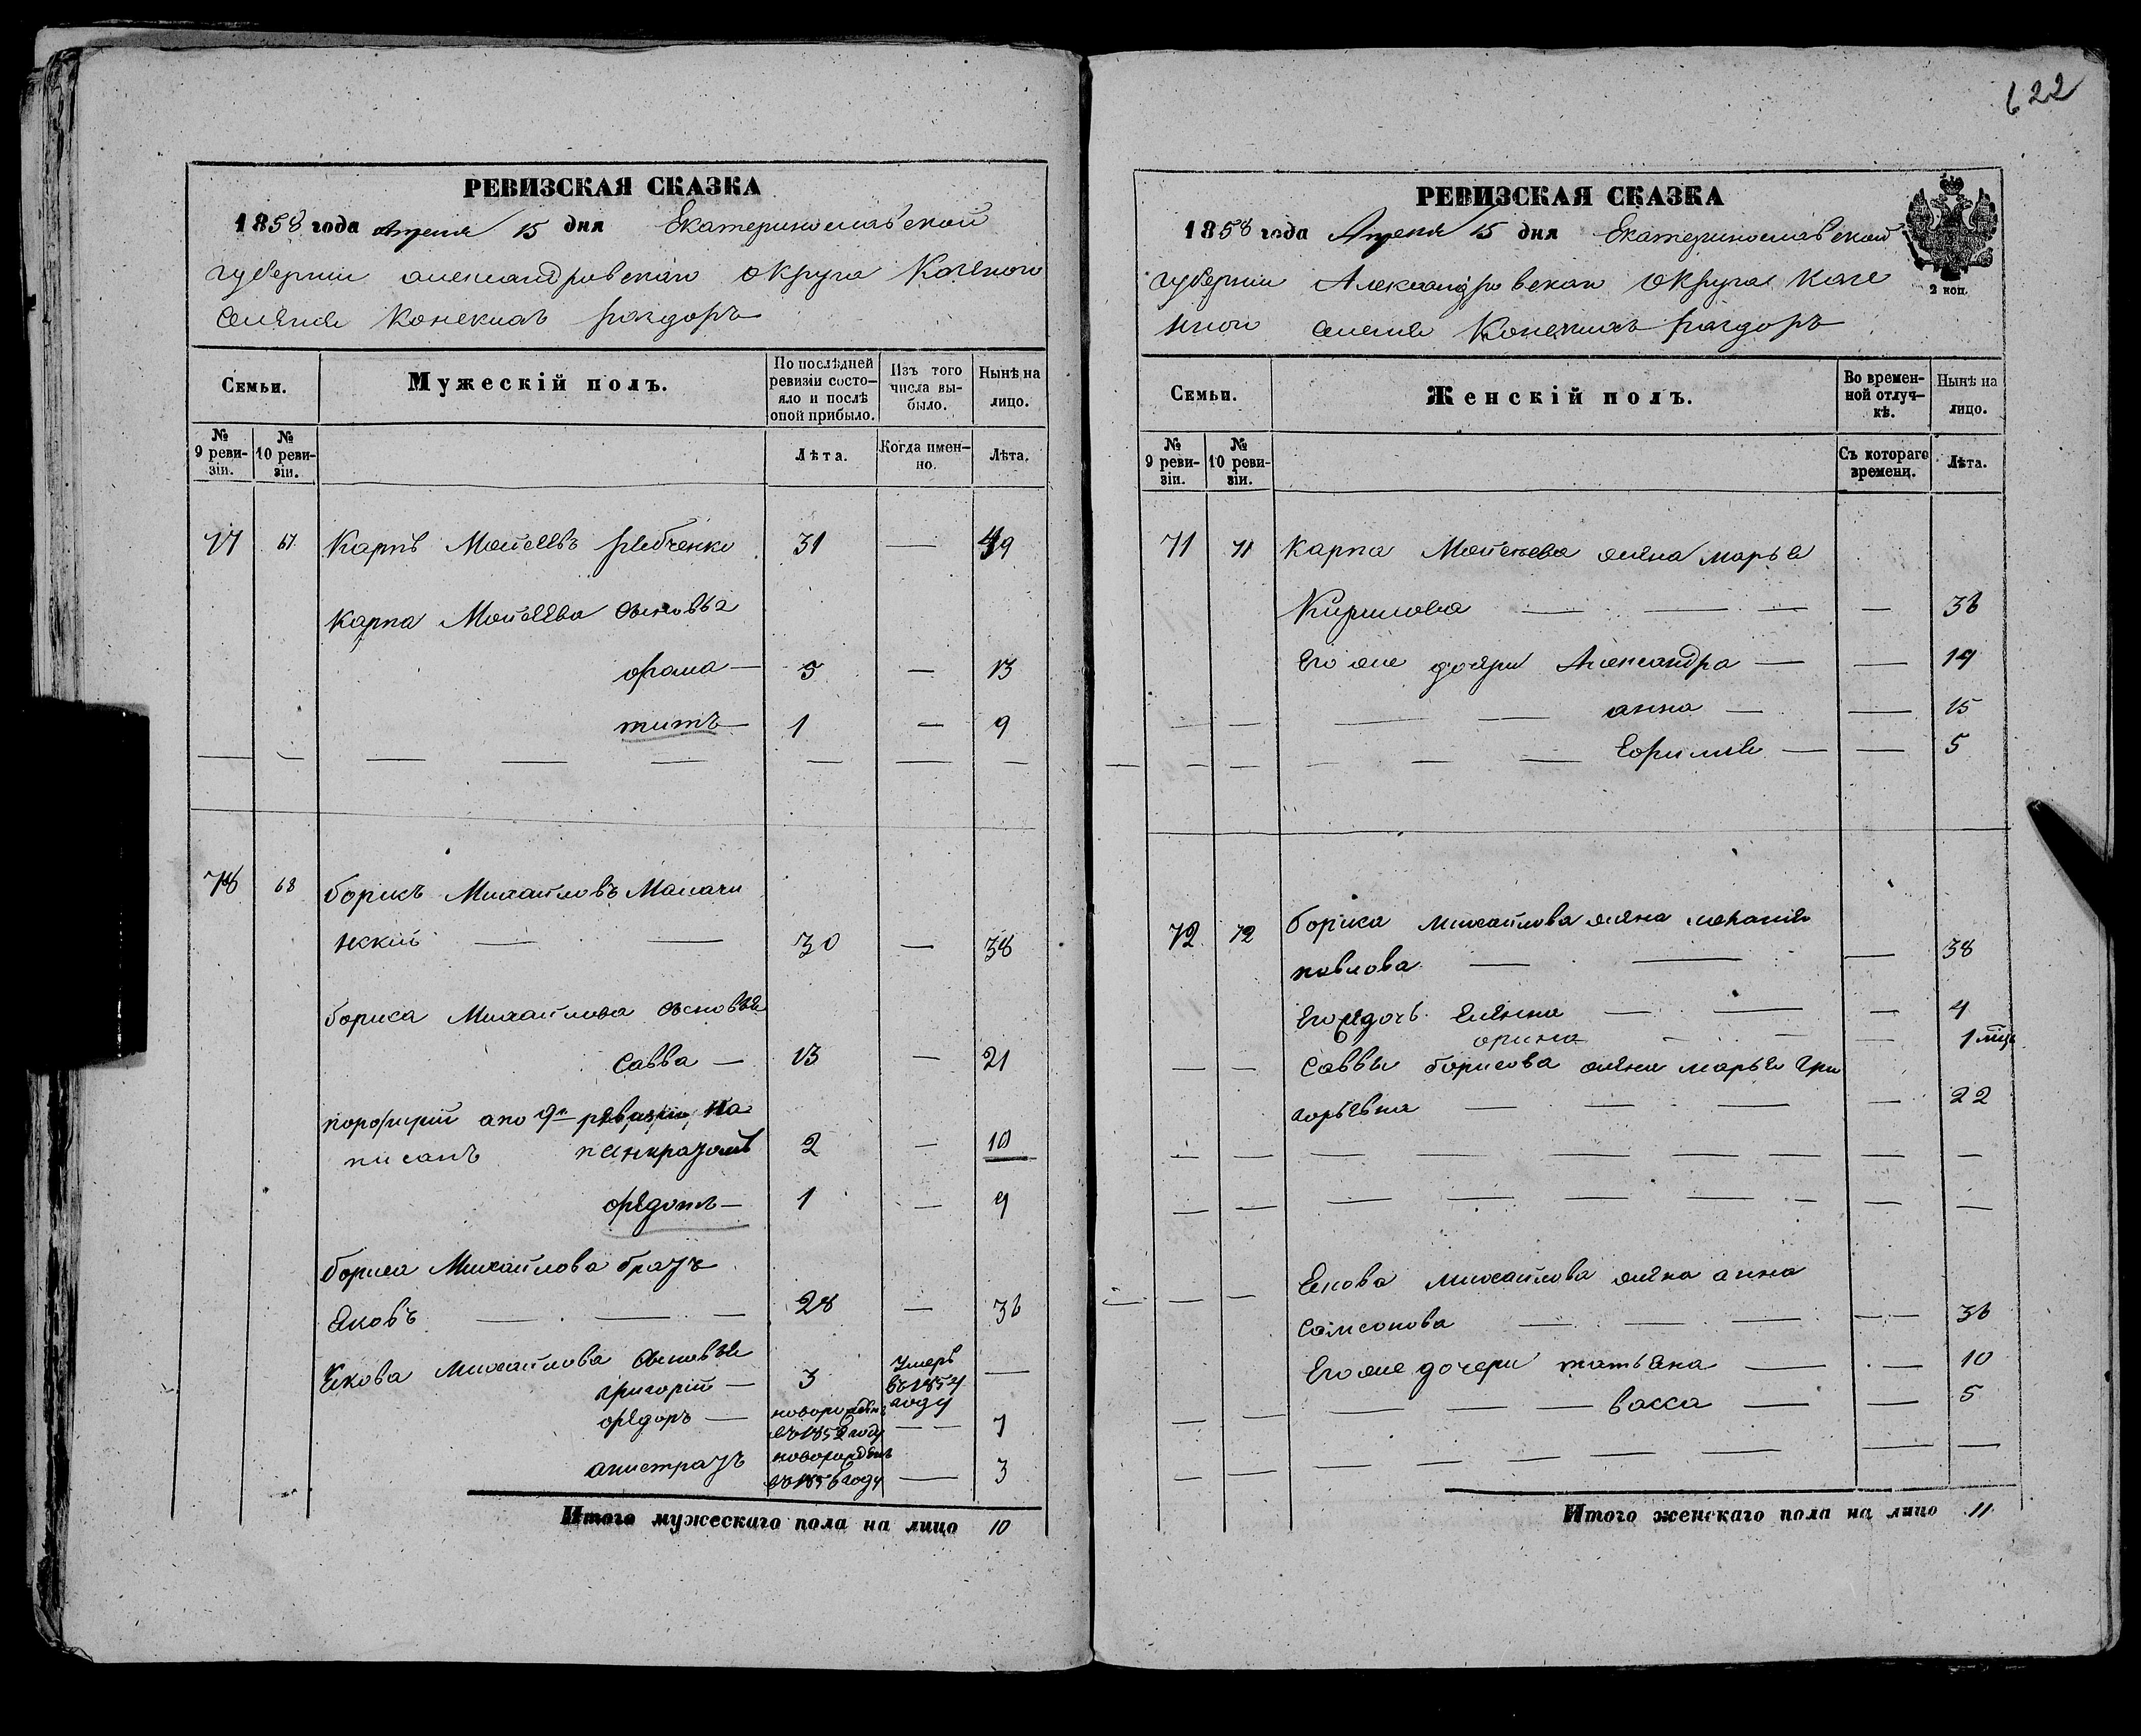 622
РЕВИЗСКАЯ СКАЗКА
1858 года Апреля 15 дня Екатеринославской
губернии александровскаго округа Казеного
селения Конскихъ раздоръ
Семьи.
Мужескій полъ.
По послѣдней ревизіи состояло и послѣ оной прибыло.
Изъ того числа выбыло.
Нынѣ на лицо.
№ 9 ревизіи.
№ 10 ревизіи.
Лѣта.
Когда именно.
Лѣта.
67 Карпъ Мойсеевъ 31 — 39
Карпа Мойсеева сыновья
фома — 5 — 13
титъ — 1 — 9
78 68 борисъ Михайловъ
нский — — 30 — 38
бориса Михайлова сыновья
Савва — 13 — 21
порфирий а по 9й ревизии на
писанъ панкратомъ 2 — 10
федотъ — 1 — 9
бориса Михайлова братъ
Яковъ — — — 28 — 36
Якова Михайлова сыновья
григорій — 3 Умеръ въ 1854 году —
федоръ — новорожденъ въ 1852 году — — 7
новорожденъ въ 1856 году — 3
Итого мужескаго пола на лицо 10
РЕВИЗСКАЯ СКАЗКА
1858 года Апреля 15 дня Екатеринославской
губернии Александровскаго округа казе
ного селения Конскихъ раздоръ
2 коп.
Семьи.
Женскій полъ.
Во временной отлучкѣ.
Нынѣ на лицо.
№ 9 ревизіи.
№ 10 ревизіи.
Съ котораго времени.
Лѣта.
71 71 Карпа Мойсеева жена марья
Кирилова — — — — 36
Его же дочери Александра — — 19
анна — — 15
Ефимия — — 5
72 72 бориса михайлова жена
павлова — — — 38
Его же дочь Елена — — — 4
орина — — — 1 мцъ
Саввы борисова жена марья гри
горьевна — — — — 22
Якова михайлова жена анна
Самсонова — — — — 36
Его же дочери татьяна — — 10
васса — — 5
Итого женскаго пола на лицо 11